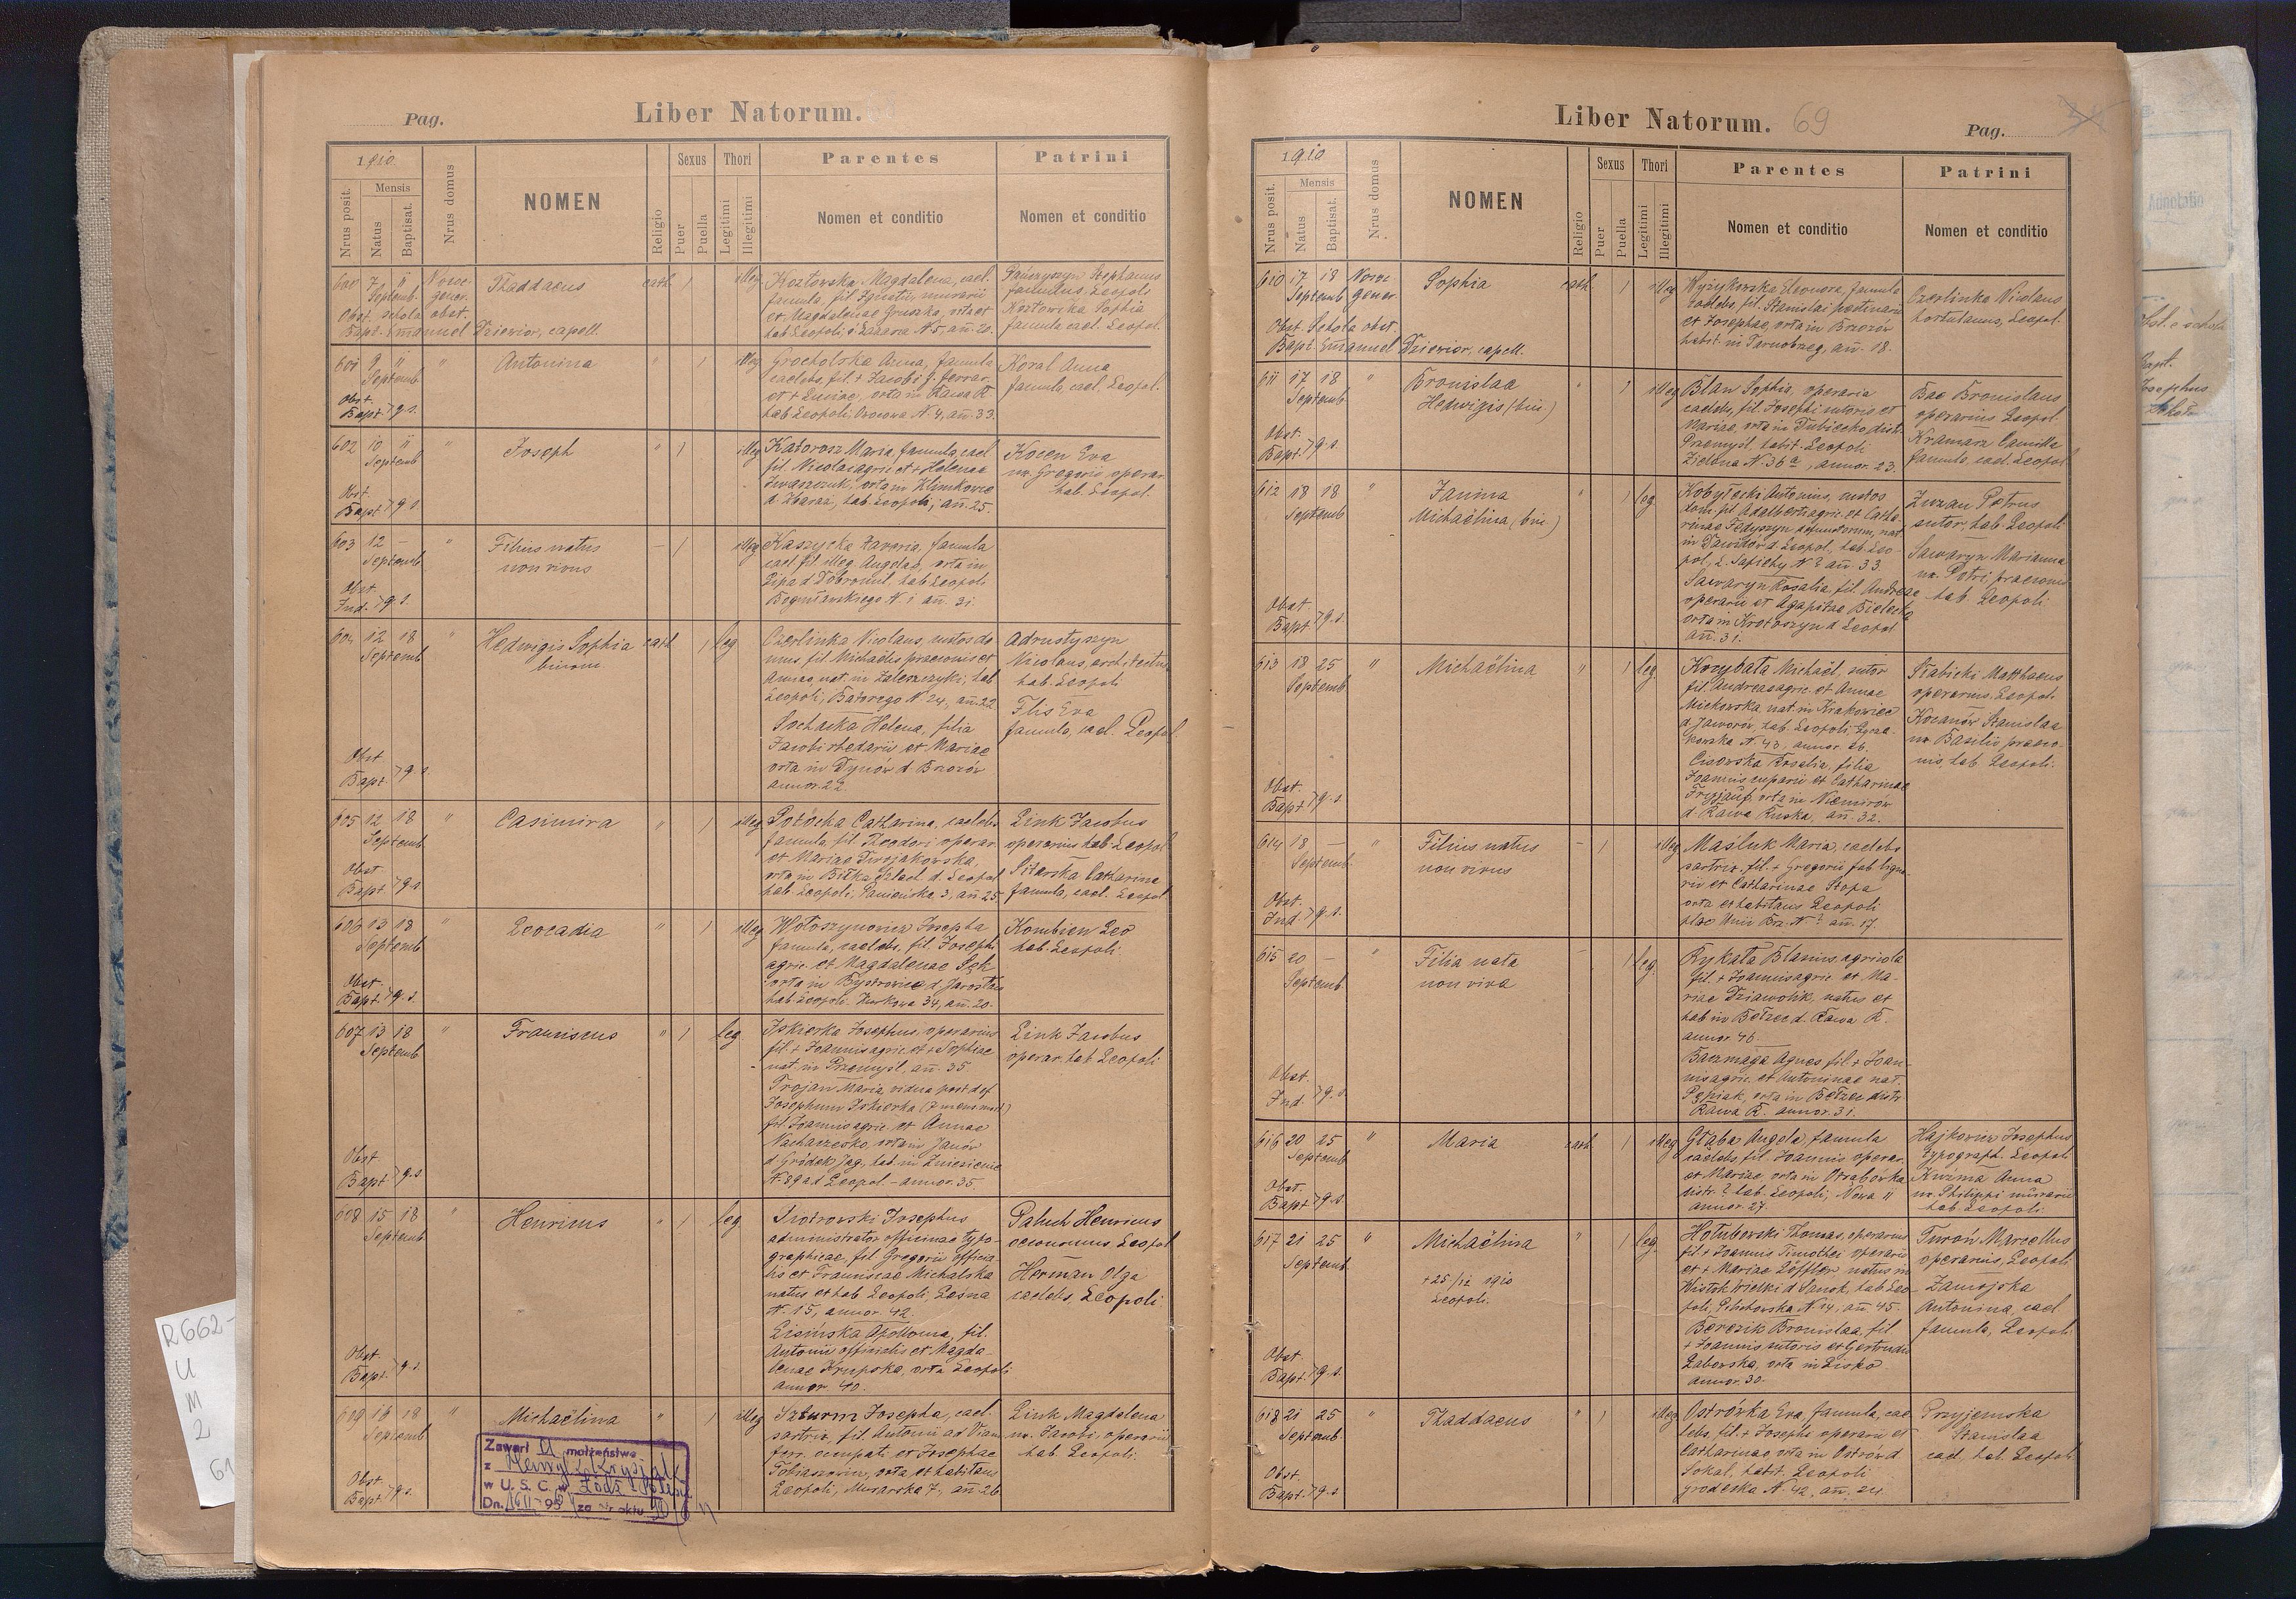 Pag.
Liber Natorum.
1910.
Nrus posit.
Mensis
Natus
Baptisat.
Nrus domus
NOMEN
Religio
Sexus
Puer
Puella
Thori
Legitimi
Illegitimi
Parentes
Nomen et conditio
Patrini
Nomen et conditio
600 7 11
Septemb.
Thaddaeus
cath. 1 illeg.
Kozłowska Magdalena, cael.
famula, fil. Ignatii, murarii
et Magdalenae Gruszka, orta et
Stephanus
famulus, Leopoli
Kozłowska Sophia
famula cael. Leopol.
Obst. schola obst.
Bapt. Emanuel Dziewior, capell.
601 9 11
Septemb
Antonina
" 1 illeg
Grocholska Anna, famula
caelebs, fil. + Jacobi
et + Luciae, orta in Rawa R.
hab. Leopoli, N. 4, an. 33.
Koral Anna
famula, cael. Leopol.
Obst.
Bapt. > q. s.
602 10 11
Septemb
"
Joseph
" 1 illeg
Maria, famula, cael
fil. Nicolai agric. et + Helenae
Iwaszczuk, orta in Klimkowce
d. Zbaraż, hab. Leopoli, an. 25.
Kocen Eva
ux. Gregorii, operar
hab. Leopol.
Obst.
Bapt > q. s.
603 12 –
Septemb
"
Filius natus
non vivus
– 1 illeg
Kaszycka Xaveria, famula
cael. fil. illeg. Angelae, orta in
Lipa d. Dobromil, hab. Leopoli
N. 1 an. 31.
Obst.
Ind. > q. s.
604 12 18
Septemb
"
Hedwigis Sophia
binom
cath 1 leg
Czerlinka Nicolaus, custos do
mus fil. Michaëlis praeconis et
Annae, nat. in Zaleszczyki, hab
Leopoli, Batorego N. 24, an. 22
Sochacka Helena, filia
Jacobi rhedarii et Mariae
orta in Dynów d. Brzozów
annor. 22.
Nicolaus, architectus
hab. Leopoli
Flis Eva
famula, cael. Leopol.
Obst.
Bapt. > q. s.
605 12 18
Septemb
"
Casimira
" 1 illeg
Catharina, caelebs
famula, fil. Theodori operar.
et Mariae
orta in Biłka szlach. d. Leopol
hab. Leopoli, Panieńska 3, an. 25
Link Jacobus
operarius hab. Leopol
Catharina
famula, cael. Leopol
Obst.
Bapt. > q. s.
606 13 18
Septemb
"
Leocadia
" 1 illeg
Wołoszynowicz Josepha
famula, caelebs, fil. Josephi
agric. et Magdalenae Sęk
orta in Bystrowice d. Jarosław
hab. Leopoli. 34, an. 20.
Kombien Leo
hab. Leopoli.
Obst.
Bapt. > q. s.
607 13 18
Septemb
"
Franciscus
" 1 leg.
Iskierka Josephus, operarius
fil. + Joannis agric. et + Sophiae
nat. in Przemyśl. an. 35.
Trojan Maria, vidua post def.
Josephum Iskierka
fil. Joannis agric. et Annae
orta in Janów
d. Gródek Jag., hab. in Zniesienie
N. 89 ad Leopol. – annor. 35.
Link Jacobus
operar. hab. Leopoli
Obst.
Bapt. > q. s
608 15 18
Septemb
"
Henricus
" 1 leg.
Piotrowski Josephus
administrator officinae typo-
graphicae, fil. Gregorii officia-
lis et Franciscae Michalska
natus et hab. Leopoli, Leśna
N. 15, annor. 42.
Lisińska Apollonia, fil.
Antonii officialis et Magda
lenae Krupska, orta Leopoli
annor. 40.
Paluch Henricus
oeconomus, Leopol
Herman Olga
caelebs, Leopoli
Obst.
Bapt. > q. s.
609 16 18
Septemb
"
Michaëlina
" 1 illeg
Szturm Josepha, cael.
sartrix, fil. Antonii ad viam
ferr. occupati et Josephae
Tobiaszewicz, orta et habitans
Leopoli, Murarska 7, an. 26
Link Magdalena
ux. Jacobi, operarii
hab. Leopoli.
Obst.
Bapt. > q. s.
Zawarł a małżeństwo
z Henryk
w U. S. C. w Łódź
Dn. 95 za nr aktu
R662-
U
M
2
61
Liber Natorum. 69
Pag.
1910
Nrus posit.
Mensis
Natus
Baptisat.
Nrus domus
NOMEN
Religio
Sexus
Puer
Puella
Thori
Legitimi
Illegitimi
Parentes
Nomen et conditio
Patrini
Nomen et conditio
610 17 18
Septemb
Nosoc.
gener.
Sophia
cath. 1 illeg
Wyżykowska Eleonora, famula
caelebs, fil. Stanislai
et Josephae, orta in Brzozów
habit. in Tarnobrzeg, an. 18.
Czerlinka Nicolaus
hortulanus, Leopol.
Obst. Schola obst.
Bapt. Emanuel Dziewior, capell.
611 17 18
Septemb.
"
Bronislaa
Hedwigis (bin)
" 1 illeg
Blan Sophia, operaria
caelebs, fil. Josephi sutoris et
Mariae, orta in Dubiecko distr.
Przemyśl habit. Leopoli
Zielona N. 36 a, annor. 23.
Bac Bronislaus
operarius Leopol.
Kramarz Camilla
famula, cael. Leopol
Obst.
Bapt. > q. s.
612 18 18
Septemb
"
Janina
Michaëlina, (bin)
" 1 leg.
Kobyłecki Antonius, custos
dom. fil. Adalberti agric. et Catha-
rinae Fedyszyn defunctorum, nat.
in Dawidów d. Leopol, hab. Leo
pol, L. Sapiehy N. ? an. 33.
Sawaryn Rosalia, fil. Andreae
operarii et Agapitae Bielecka
orta in Krotoszyn d. Leopol
an. 31.
Petrus
sutor, hab. Leopoli
Sawaryn Marianna
ux. Petri praeconis
hab. Leopoli
Obst.
Bapt. > q. s.
613 18 25
Septemb
"
Michaëlina
" 1 leg.
Korybata Michaël, sutor
fil. Andreae agric. et Annae
Mickowska nat. in Krakowiec
d. Jaworów, hab. Leopoli,
N. 43, annor. 26.
Cisowska Rosalia, filia
Joannis et Catharinae
orta in Niemirów
d. Rawa Ruska, an. 32.
Słabicki Matthaeus
operarius, Leopoli
Kocanów Stanislaa
ux. Basilii praeco-
nis, hab. Leopoli.
Obst.
Bapt. > q. s.
614 18 –
Septemb
"
Filius natus
non vivus
– 1 illeg
Maśluk Maria, caelebs
sartrix, fil. + Gregorii fab. ligna
rii et Catharinae Stopa
orta et habitans Leopoli
plac Unii Brz. N. ? an. 17.
Obst.
Ind. > q. s.
615 20 –
Septemb
"
Filia nata
non viva
– 1 leg.
Rykała Blasius, agricola
fil. + Joannis agric. et Ma-
riae Dziawolik, natus et
hab. in Bełzec d. Rawa R.
annor. 46.
Baczmaga Agnes fil. + Joan-
nis agric. et Antoninae nat.
Pępiak, orta in Bełzec distr.
Rawa R. annor. 31.
Obst.
Ind. > q. s.
616 20 25
Septemb
"
Maria
cath. 1 illeg
Głaba Angela, famula
caelebs, fil. Joannis operar.
et Mariae orta in
distr. ? hab. Leopoli, Nowa 11
annor. 27.
Hajkowicz Josephus
typograph. Leopoli
Kuźma Anna
ux. Philippi murarii
hab. Leopoli
Obst.
Bapt. > q. s.
617 21 25
Septemb
"
Michaëlina
+ 25/12 1910
Leopoli.
" 1 leg.
Hołubowski Thomas, operarius
fil. + Joannis Timothei operarii
et + Mariae Löffler natus in
Wisłok wielki d. Sanok, hab. Leo
poli, N. 14, an. 45.
Berezik Bronislaa, fil.
+ Joannis sutoris et Gertrudis
Zaborska, orta in Lisko
annor. 30.
Turoń Marcellus
operarius, Leopoli
Zamojska
Antonina, cael.
famula, Leopoli
Obst.
Bapt. > q. s.
618 21 25
Septemb.
"
Thaddaeus
" 1 illeg
Ostrówka Eva, famula, cae-
lebs, fil. + Josephi operarii et
Catharinae orta in Ostrów d.
Sokal, habit. Leopoli
Grodecka N. 42, an. 24.
Przyjemska
Stanislaa
cael. hab. Leopoli
Obst.
Bapt. > q. s
Annotatio
Obst. e schola
Bapt.
Josephus